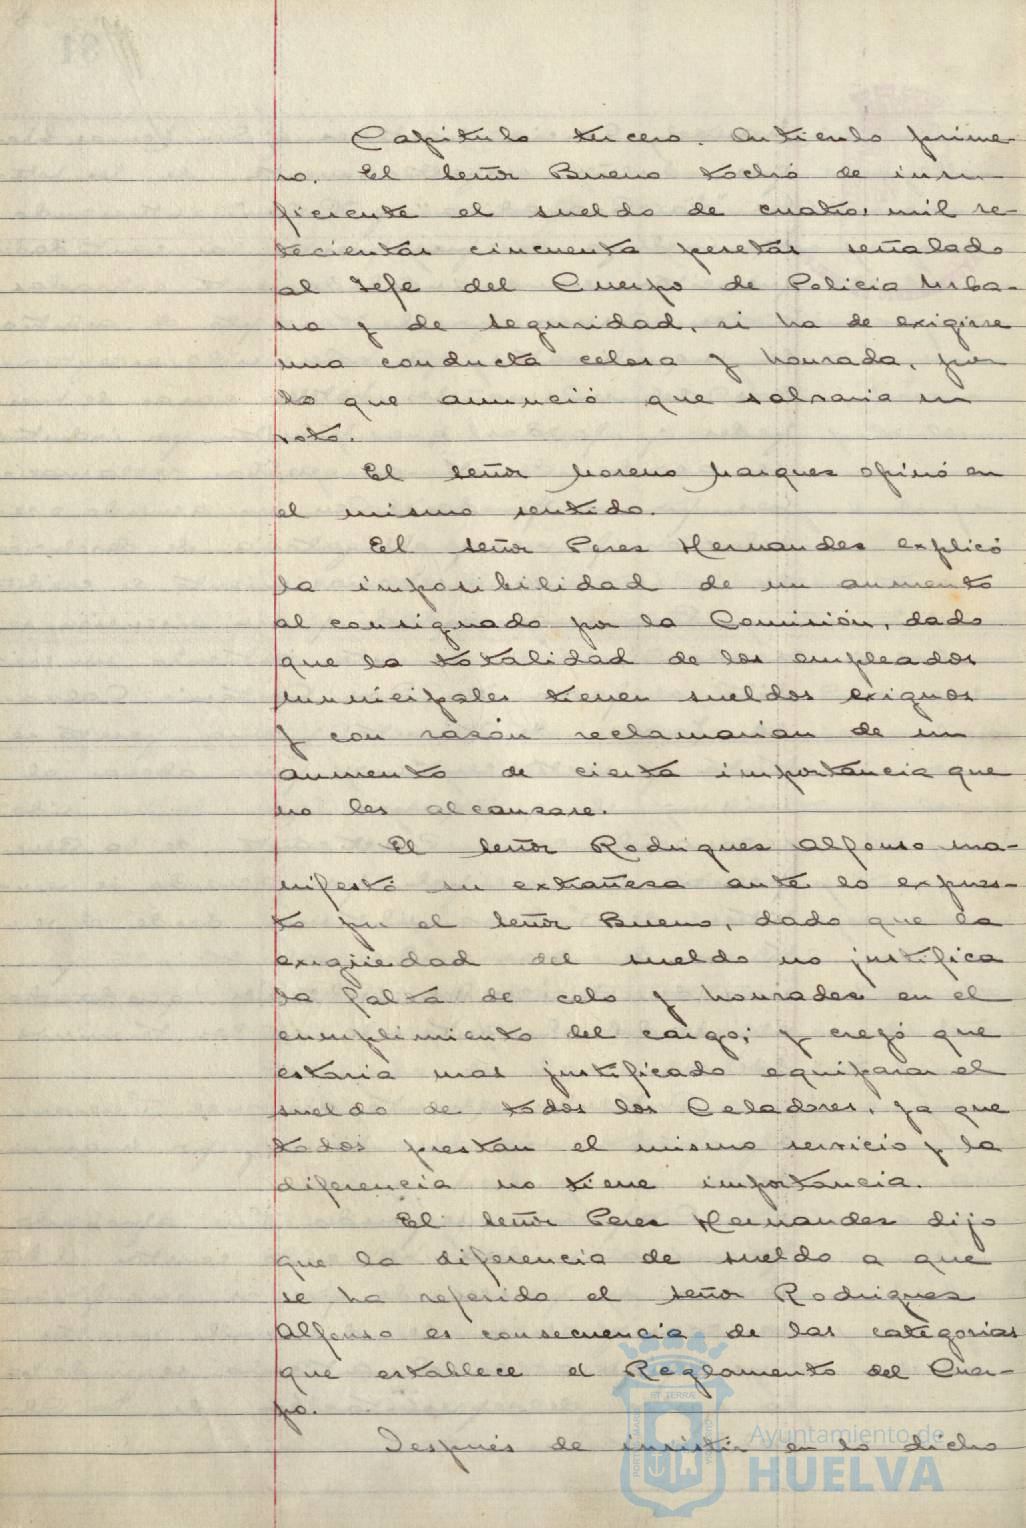 Capitulo tercero. Articulo prime-
ro. El señor Bueno tachó de insu-
ficiente el sueldo de cuatro mil se-
tecientas cincuenta pesetas señalado
al Jefe del Cuerpo de Policia Urba-
na y de seguridad, si ha de exigirse
una conducta celosa y honrada, por
lo que anunció que salvaria su
voto.
El señor Moreno Marquez opinó en
el mismo sentido.
El señor Perez Hernandez explicó
la imposibilidad de un aumento
al consignado por la Comisión, dado
que la totalidad de los empleados
municipales tienen sueldos exiguos
y con razón reclamarian de un
aumento de cierta importancia que
no les alcanzare.
El señor Rodriguez Alfonso ma-
nifestó su extrañeza ante lo expues-
to por el señor Bueno, dado que la
exigüedad del sueldo no justifica
la falta de celo y honradez en el
cumplimiento del cargo; y creyó que
estaria mas justificado equiparar el
sueldo de todos los Celadores, ya que
todos prestan el mismo servicio y la
diferencia no tiene importancia.
El señor Perez Hernandez dijo
que la diferencia de sueldo a que
se ha referido el señor Rodriguez
Alfonso es consecuencia de las categorias
que establece el Reglamento del Cuer-
po.
Después de insistir en lo dicho
Ayuntamiento de
HUELVA